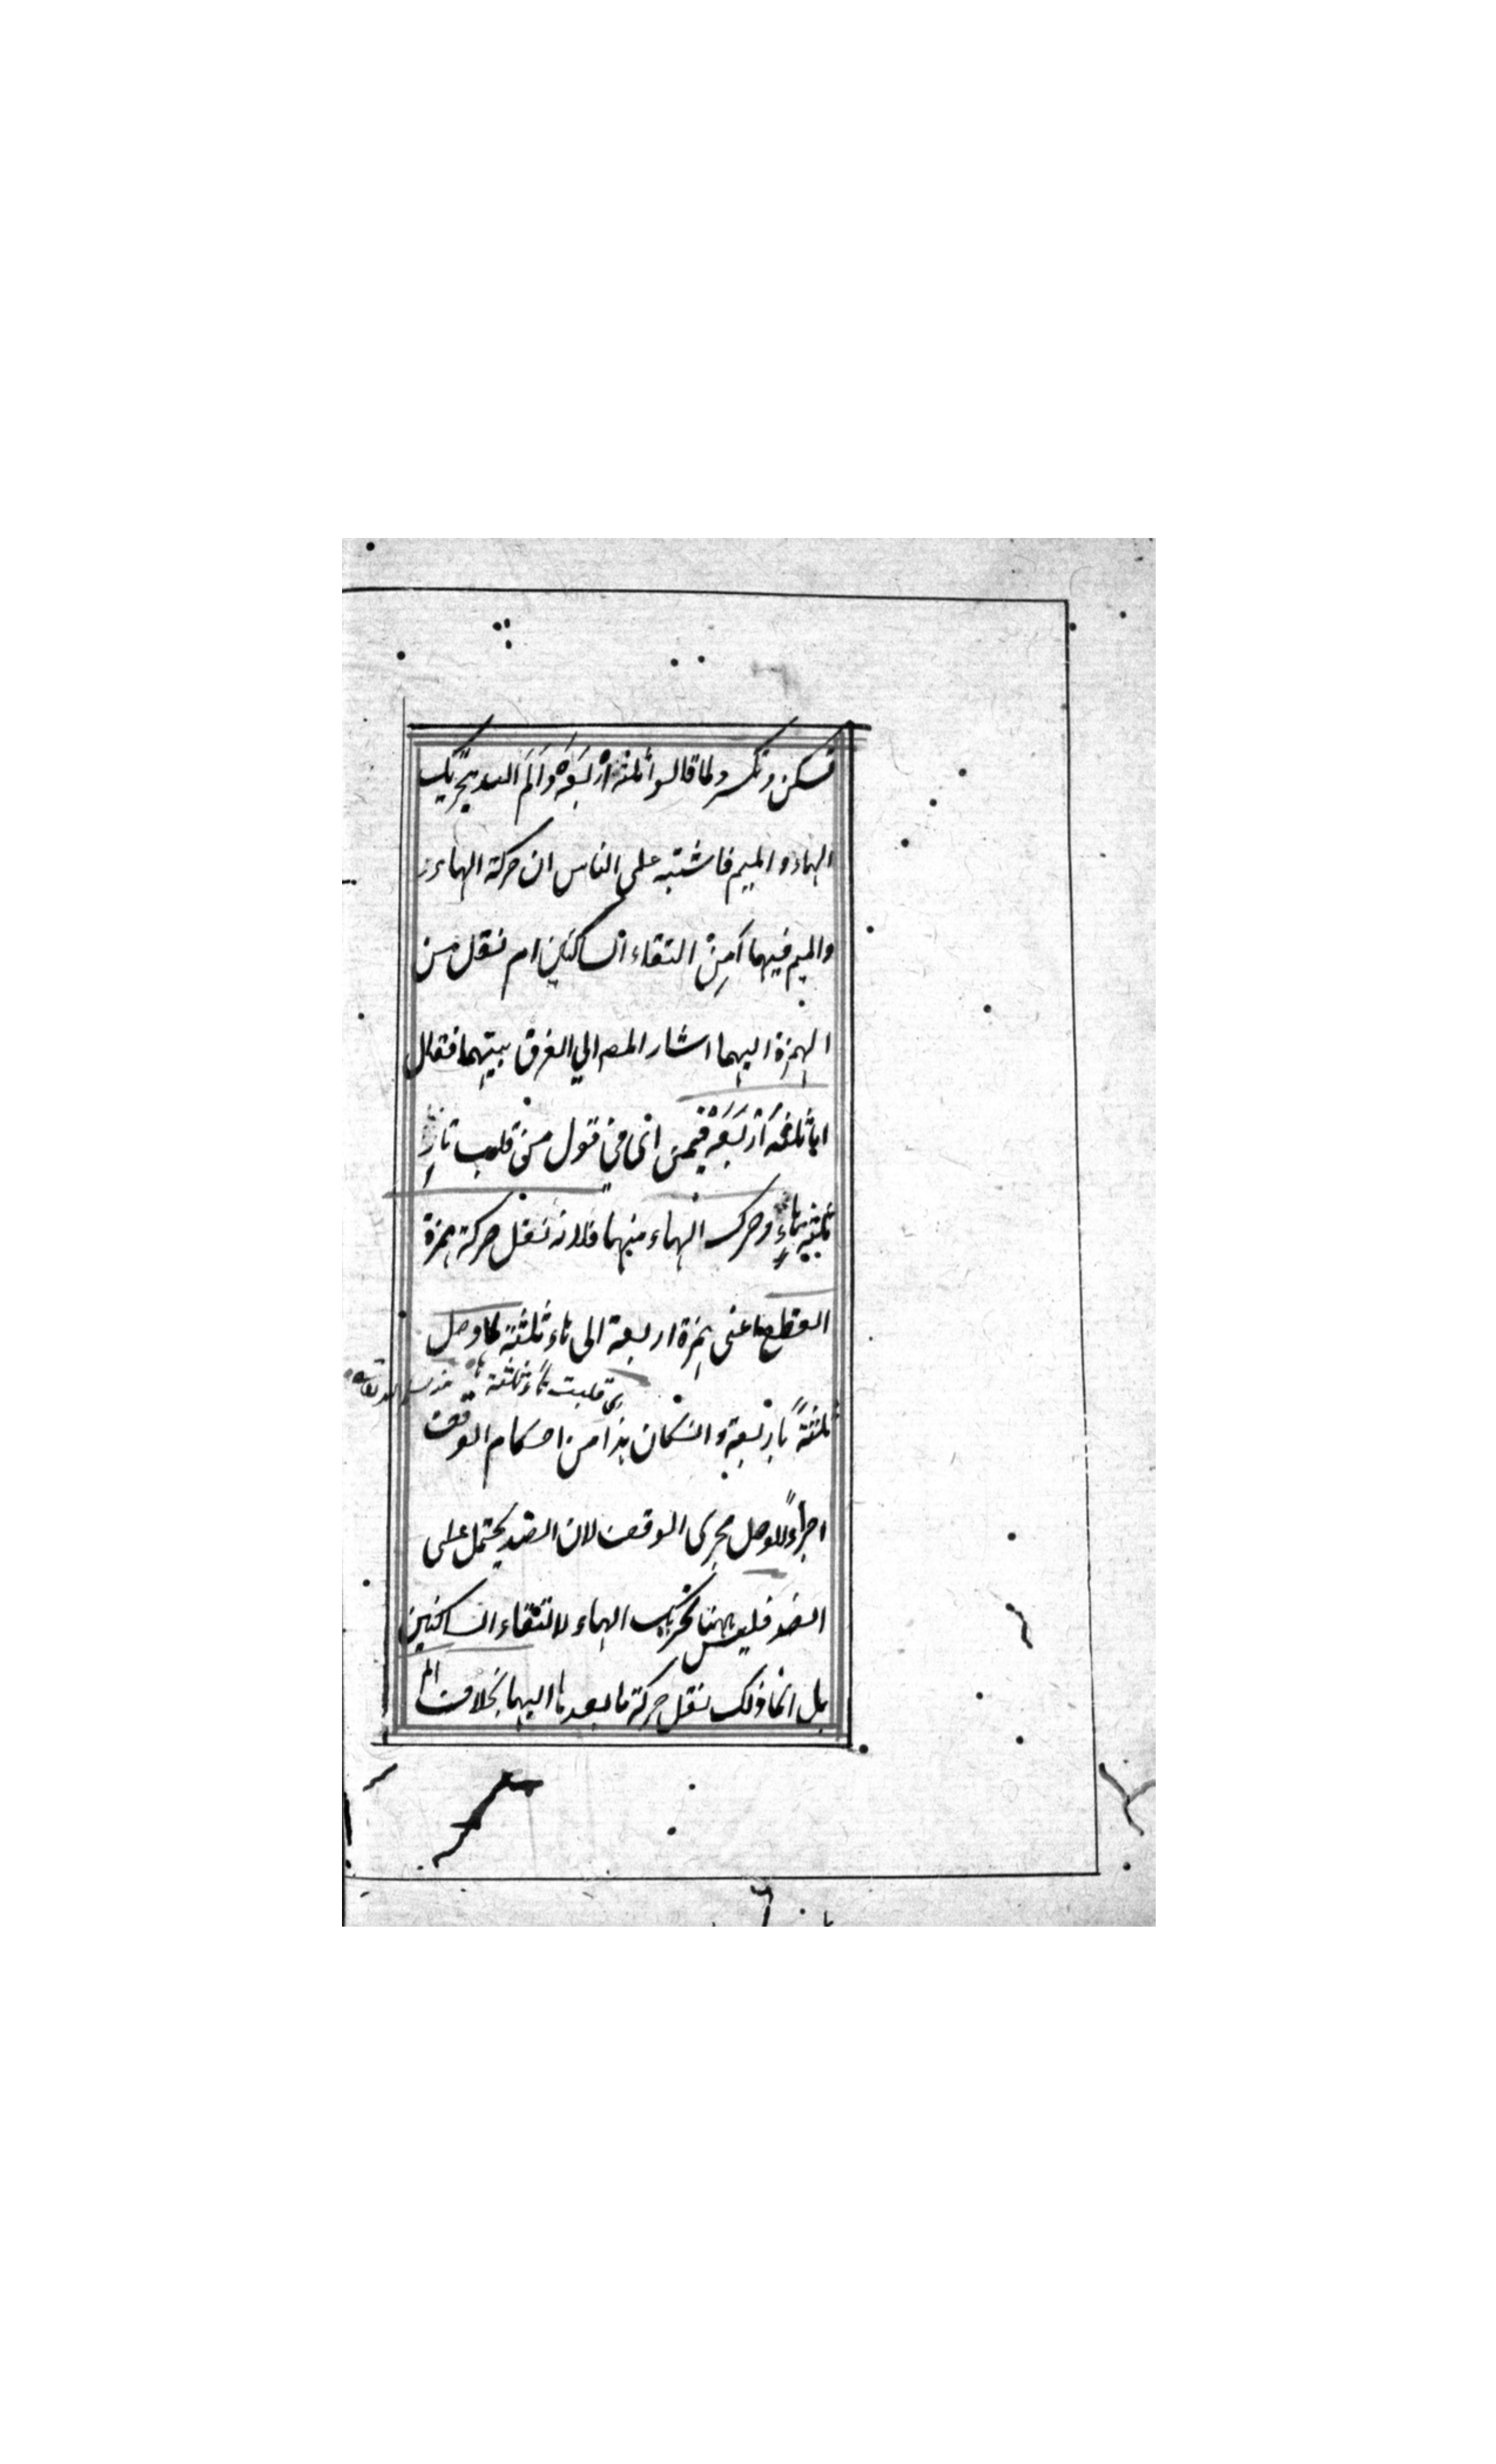 تسكن وتكسر ولما قالوا ثلثه اَرْبَعَهْ وَالَمَ الله بتحريك
الهاء والميم فاشتبه على الناس ان حركة الهاء
والميم فيهما أمِنْ التقاء الساكنين ام نقل من
الهمزة اليهما اشار المص الي الفرق بينهما فقال
اما ثلثهَ اَرْبَعَهْ فيمن اى في قول من قلب تاء
ثلثة هاءً وحرك الهاء منهما فلانه نقل حركة همزة
القطع اعنى همزة اربعة الى هاء ثلثة لما وصل
اى قلبت تاء ثلثة هاء
ثلثةً باربعة وان كان هذا من احكام الوقف
اجراءً للوصل مجرى الوقف لان الضد يحتمل على
الضد فليس ههنا تحريك الهاء لالتقاء الساكنين
بل انما ذلك نقل حركة ما بعدها اليها بخلاف الم